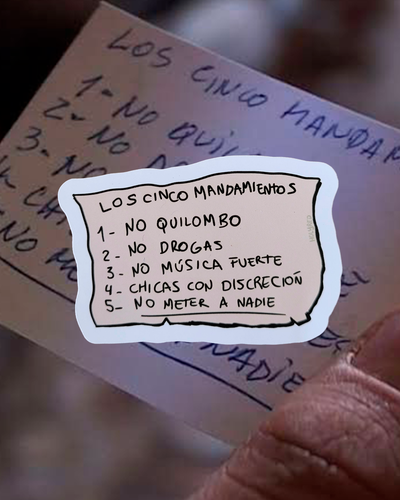 LOS CINCO MANDAM
1- NO QUIL
2- NO D
3- NO
NO M
NADIE
LOS CINCO MANDAMIENTOS
1- NO QUILOMBO
2- NO DROGAS
3- NO MÚSICA FUERTE
4- CHICAS CON DISCRECIÓN
5- NO METER A NADIE